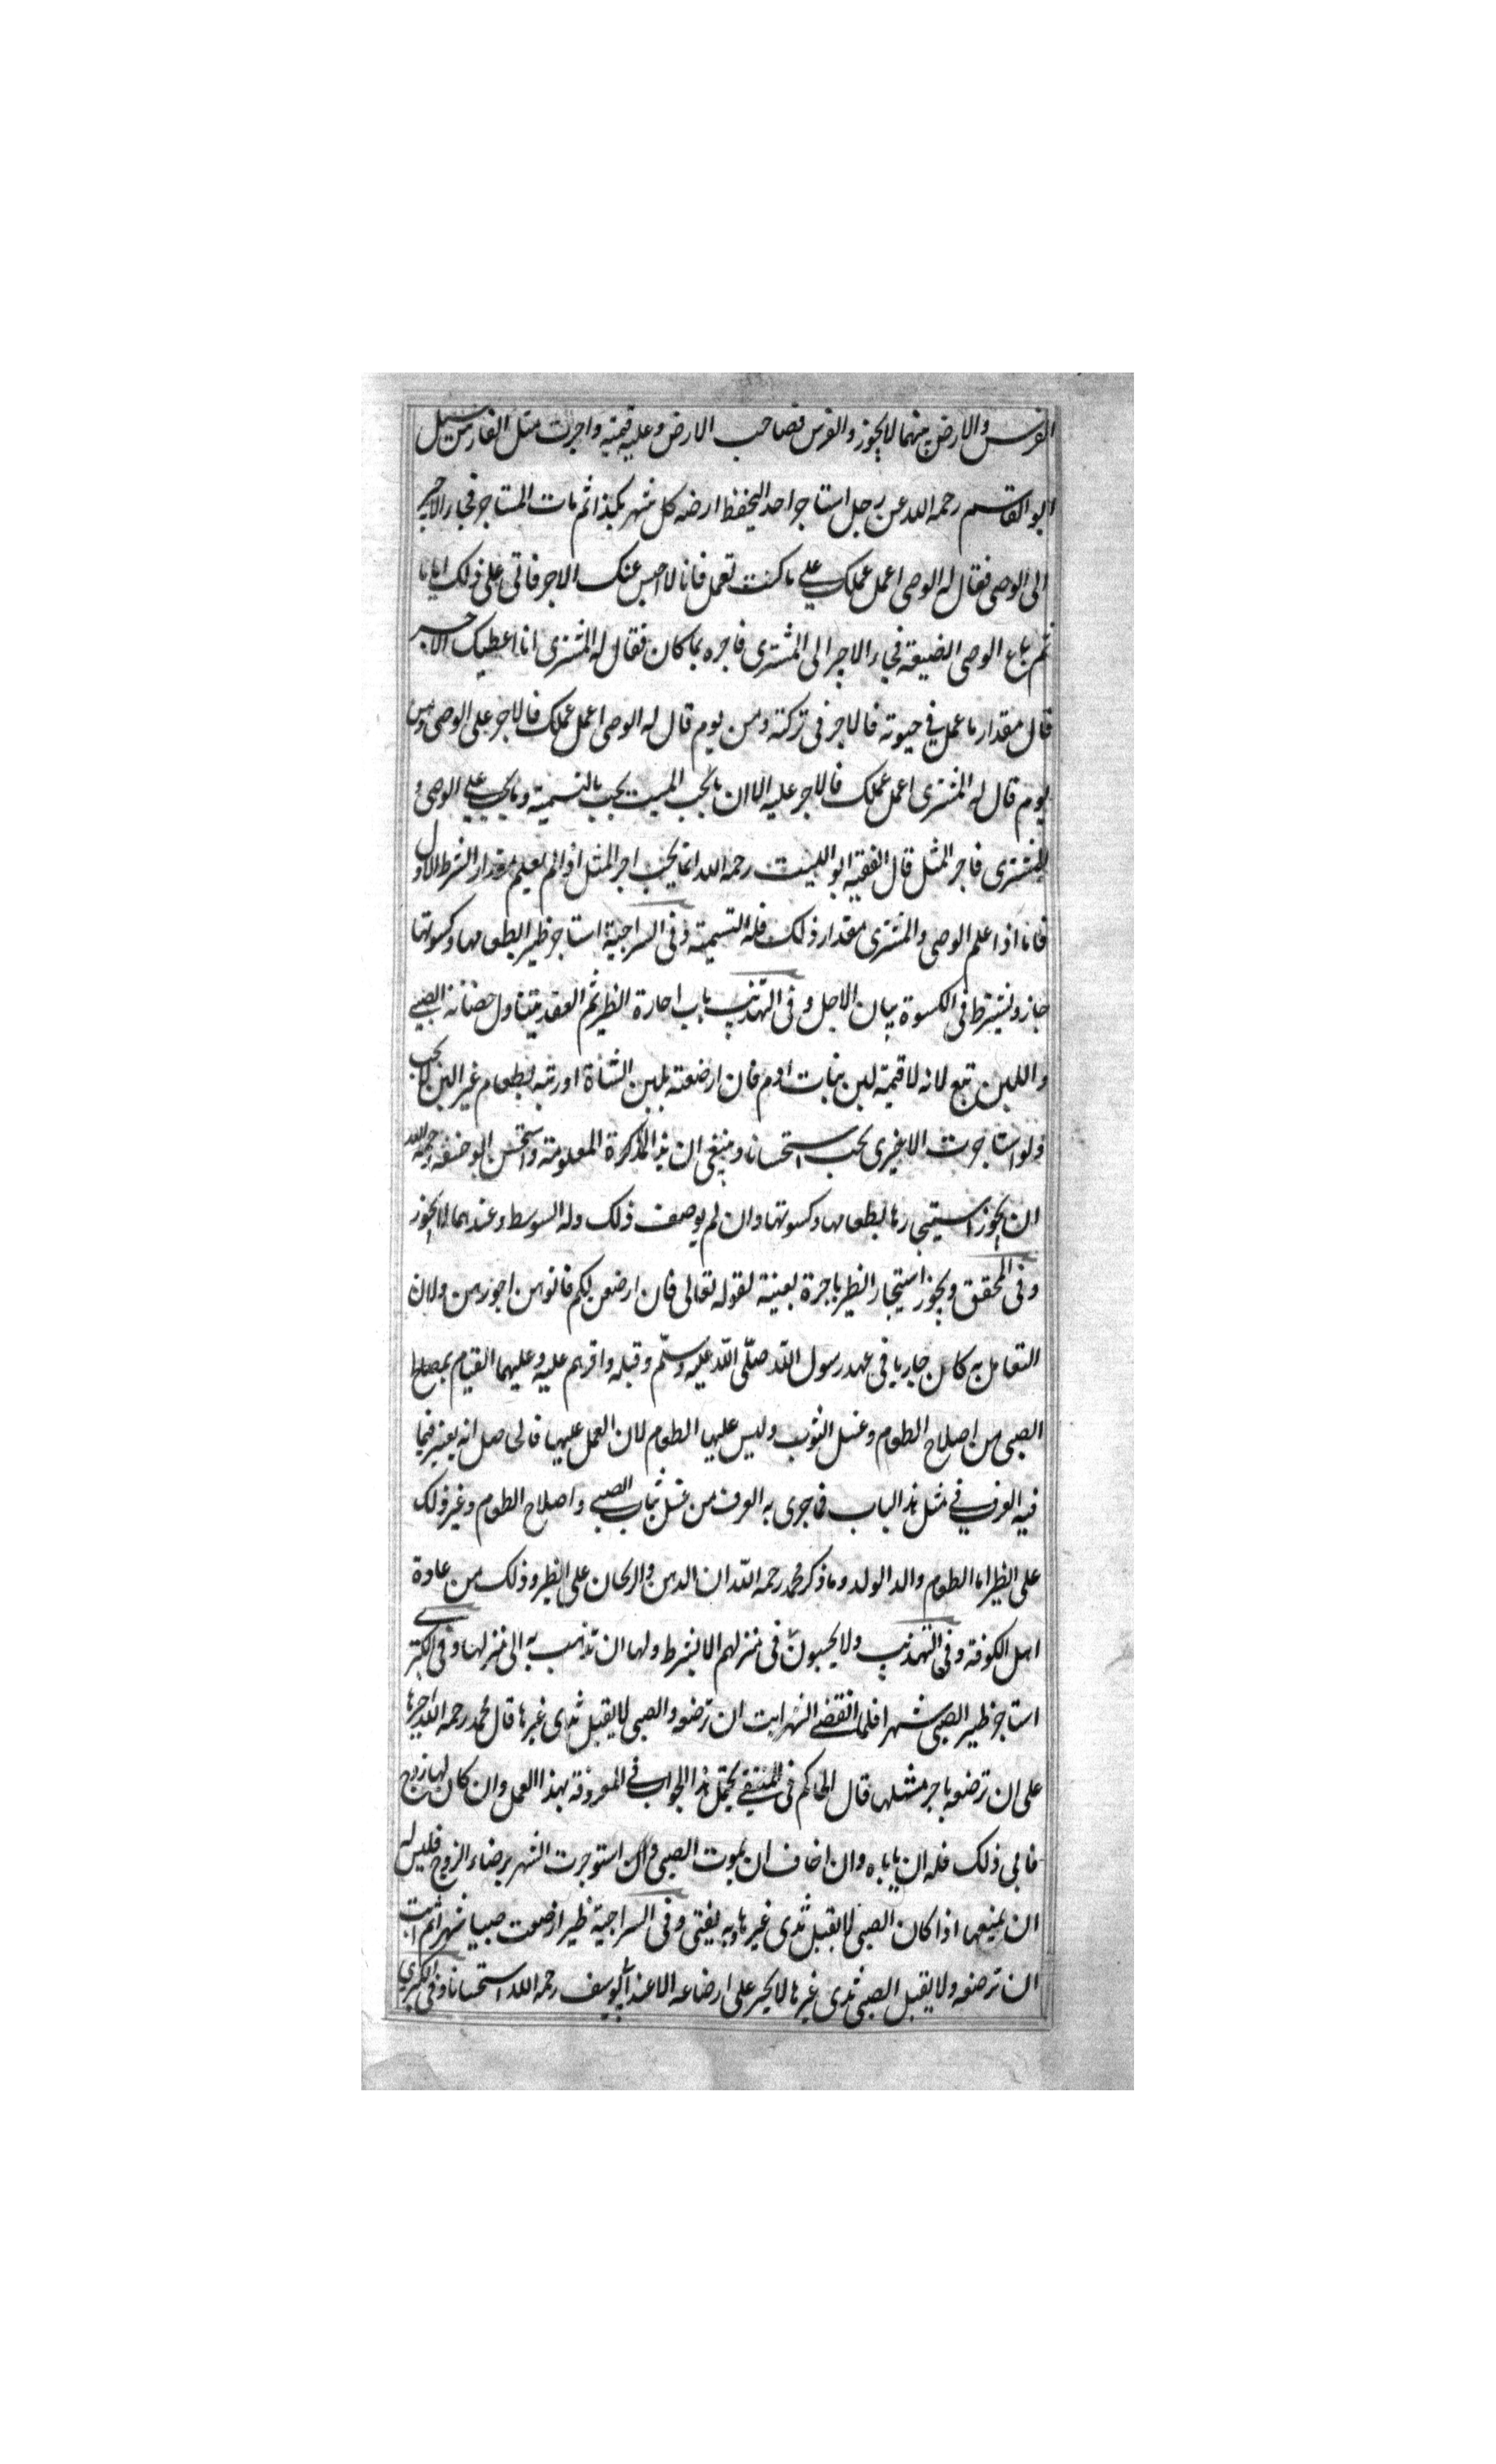 الغرس والارض بينهما لا يجوز والغرس لصاحب الارض وعليه قيمته واجرت مثل الغارس سئل
ابو القاسم رحمه الله عن رجل استاجر احدا ليحفظ ارضه كل شهر بكذا ثم مات المستاجر فجاء الاجير
الى الوصى فقال له الوصى اعمل عملك على ما كنت تعمل فانا لا احبس عنك الاجر فاتى على ذلك ايام
ثم باع الوصى الضيعة فجاء الاجير الى المشترى فاخبره بما كان فقال له المشترى انا اعطيك الاجر
قال مقدار ما عمل في حيوته فالاجر فى تركته ومن يوم قال له الوصى اعمل عملك فالاجر على الوصى ومن
يوم قال له المشترى اعمل عملك فالاجر عليه الا ان ما يجب على الميت يجب بالتسمية وما يجب على الوصى و
المشترى فاجر المثل قال الفقيه ابو الليث رحمه الله انما يجب اجر المثل اذا لم يعلم مقدار الشرط الاول
فاما اذا علم الوصى والمشترى مقدار ذلك فله التسمية وفى السراجية استاجر ظيرا بطعامها وكسوتها
جاز ويشترط فى الكسوة بيان الاجل وفى التهذيب باب اجارة الظير ثم العقد يتناول حضانة الصبي
واللبن تبع لانه لا قيمة لبن بنات ادم فان ارضعته بلبن الشاة او ربته بطعام غير اللبن لا يجب
ولو استاجرت الا يغيرى يجب استحسانا وينبغى ان يذكر المدة المعلومة واستحسن ابو حنيفة رحمه الله
ان يجوز استيجارها بطعامها وكسوتها وان لم يوصف ذلك وله الوسط وعندهما لا يجوز
وفى المحقق ويجوز استيجار الظير باجرة بعينة لقوله تعالى فان ارضعن لكم فاتوهن اجورهن ولان
التعامل به كان جاريا فى عهد رسول الله صلى الله عليه وسلم وقبله واقرهم عليه وعليهما القيام بمصالح
الصبى من اصلاح الطعام وغسل الثوب وليس عليها الطعام لان العمل عليها فالحاصل انه يعتبر فيما
فيه العرف في مثل هذا الباب فما جرى به العرف من غسل ثياب الصبي واصلاح الطعام وغير ذلك
على الظير اما الطعام والد الولد وما ذكر محمد رحمه الله ان الدهن والريحان على الظير وذلك من عادة
اهل الكوفة وفى التهذيب ولا يحبسون فى منزلهم الا بشرط ولها ان تذهب به الى منزلها وفى الكبرى
استاجر ظير الصبى شهرا فلما انقضى الشهر ابت ان ترضعه والصبى لا يقبل ثدى غيرها قال محمد رحمه الله اجبرها
على ان ترضعه باجر مثلها قال الحاكم فى المنتقى يحتمل هذا الجواب في المعروفة بهذا العمل وان كان لها زوج
فابى ذلك فله ان ياباه وان اخاف ان يموت الصبى وان استوجرت الشهر برضاء الزوج فليس له
ان يمنعها اذا كان الصبى لا يقبل ثدى غيرها وبه يفتى وفى السراجية ظير ارضعت صبيا شهرا ثم ابت
ان ترضعه ولا يقبل الصبى ثدى غيرها لا يجبر على ارضاعه الا عند ابي يوسف رحمه الله استحسانا وفى الكبرى